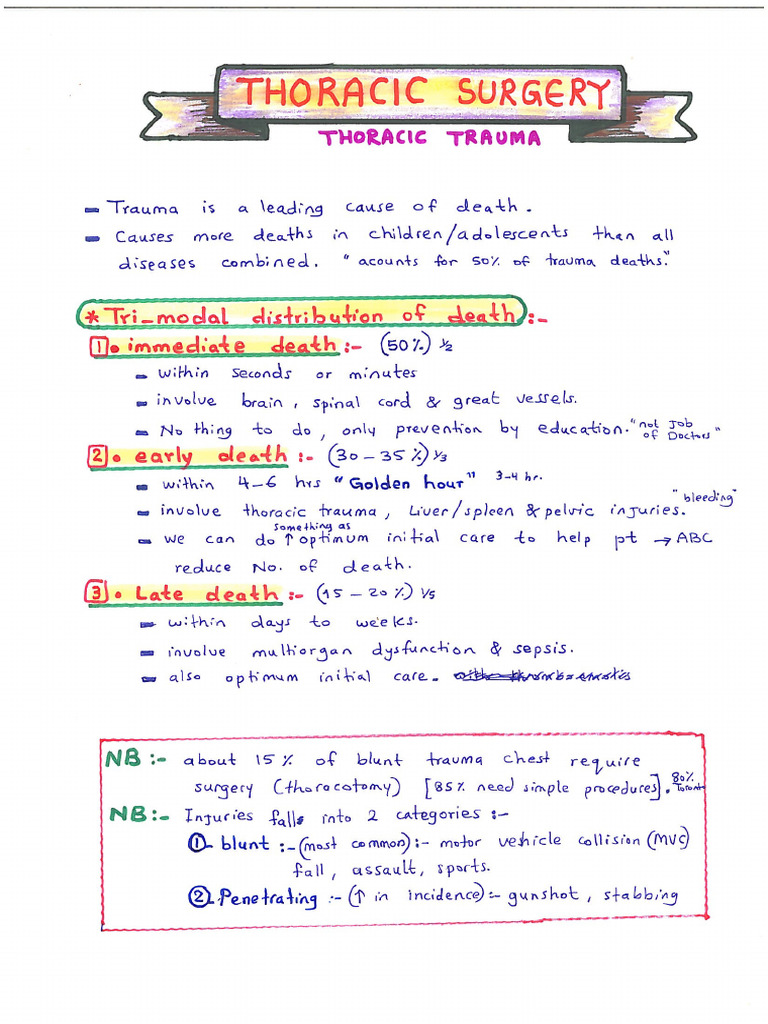 THORACIC SURGERY
THORACIC TRAUMA
- Trauma is a leading cause of death.
- Causes more deaths in children/adolescents than all
diseases combined. "acounts for 50% of trauma deaths."
* Tri-modal distribution of death :-
1 • immediate death :- (50%) 1/2
- within seconds or minutes
- involve brain, spinal cord & great vessels.
- No thing to do, only prevention by education. "not Job of Doctors"
2 • early death :- (30-35%) 1/3
- within 4-6 hrs "Golden hour" 3-4 hr.
- involve thoracic trauma, Liver/spleen & pelvic injuries. "bleeding"
- we can do something as ↑ optimum initial care to help pt → ABC
reduce No. of death.
3 • Late death :- (15-20%) 1/5
- within days to weeks.
- involve multiorgan dysfunction & sepsis.
- also optimum initial care.
NB :- about 15% of blunt trauma chest require
surgery (thoracotomy) [85% need simple procedures]. 80%
NB :- Injuries falls into 2 categories :-
1- blunt :- (most common) :- motor vehicle collision (MVC)
fall, assault, sports.
2- Penetrating :- (↑ in incidence) :- gunshot, stabbing